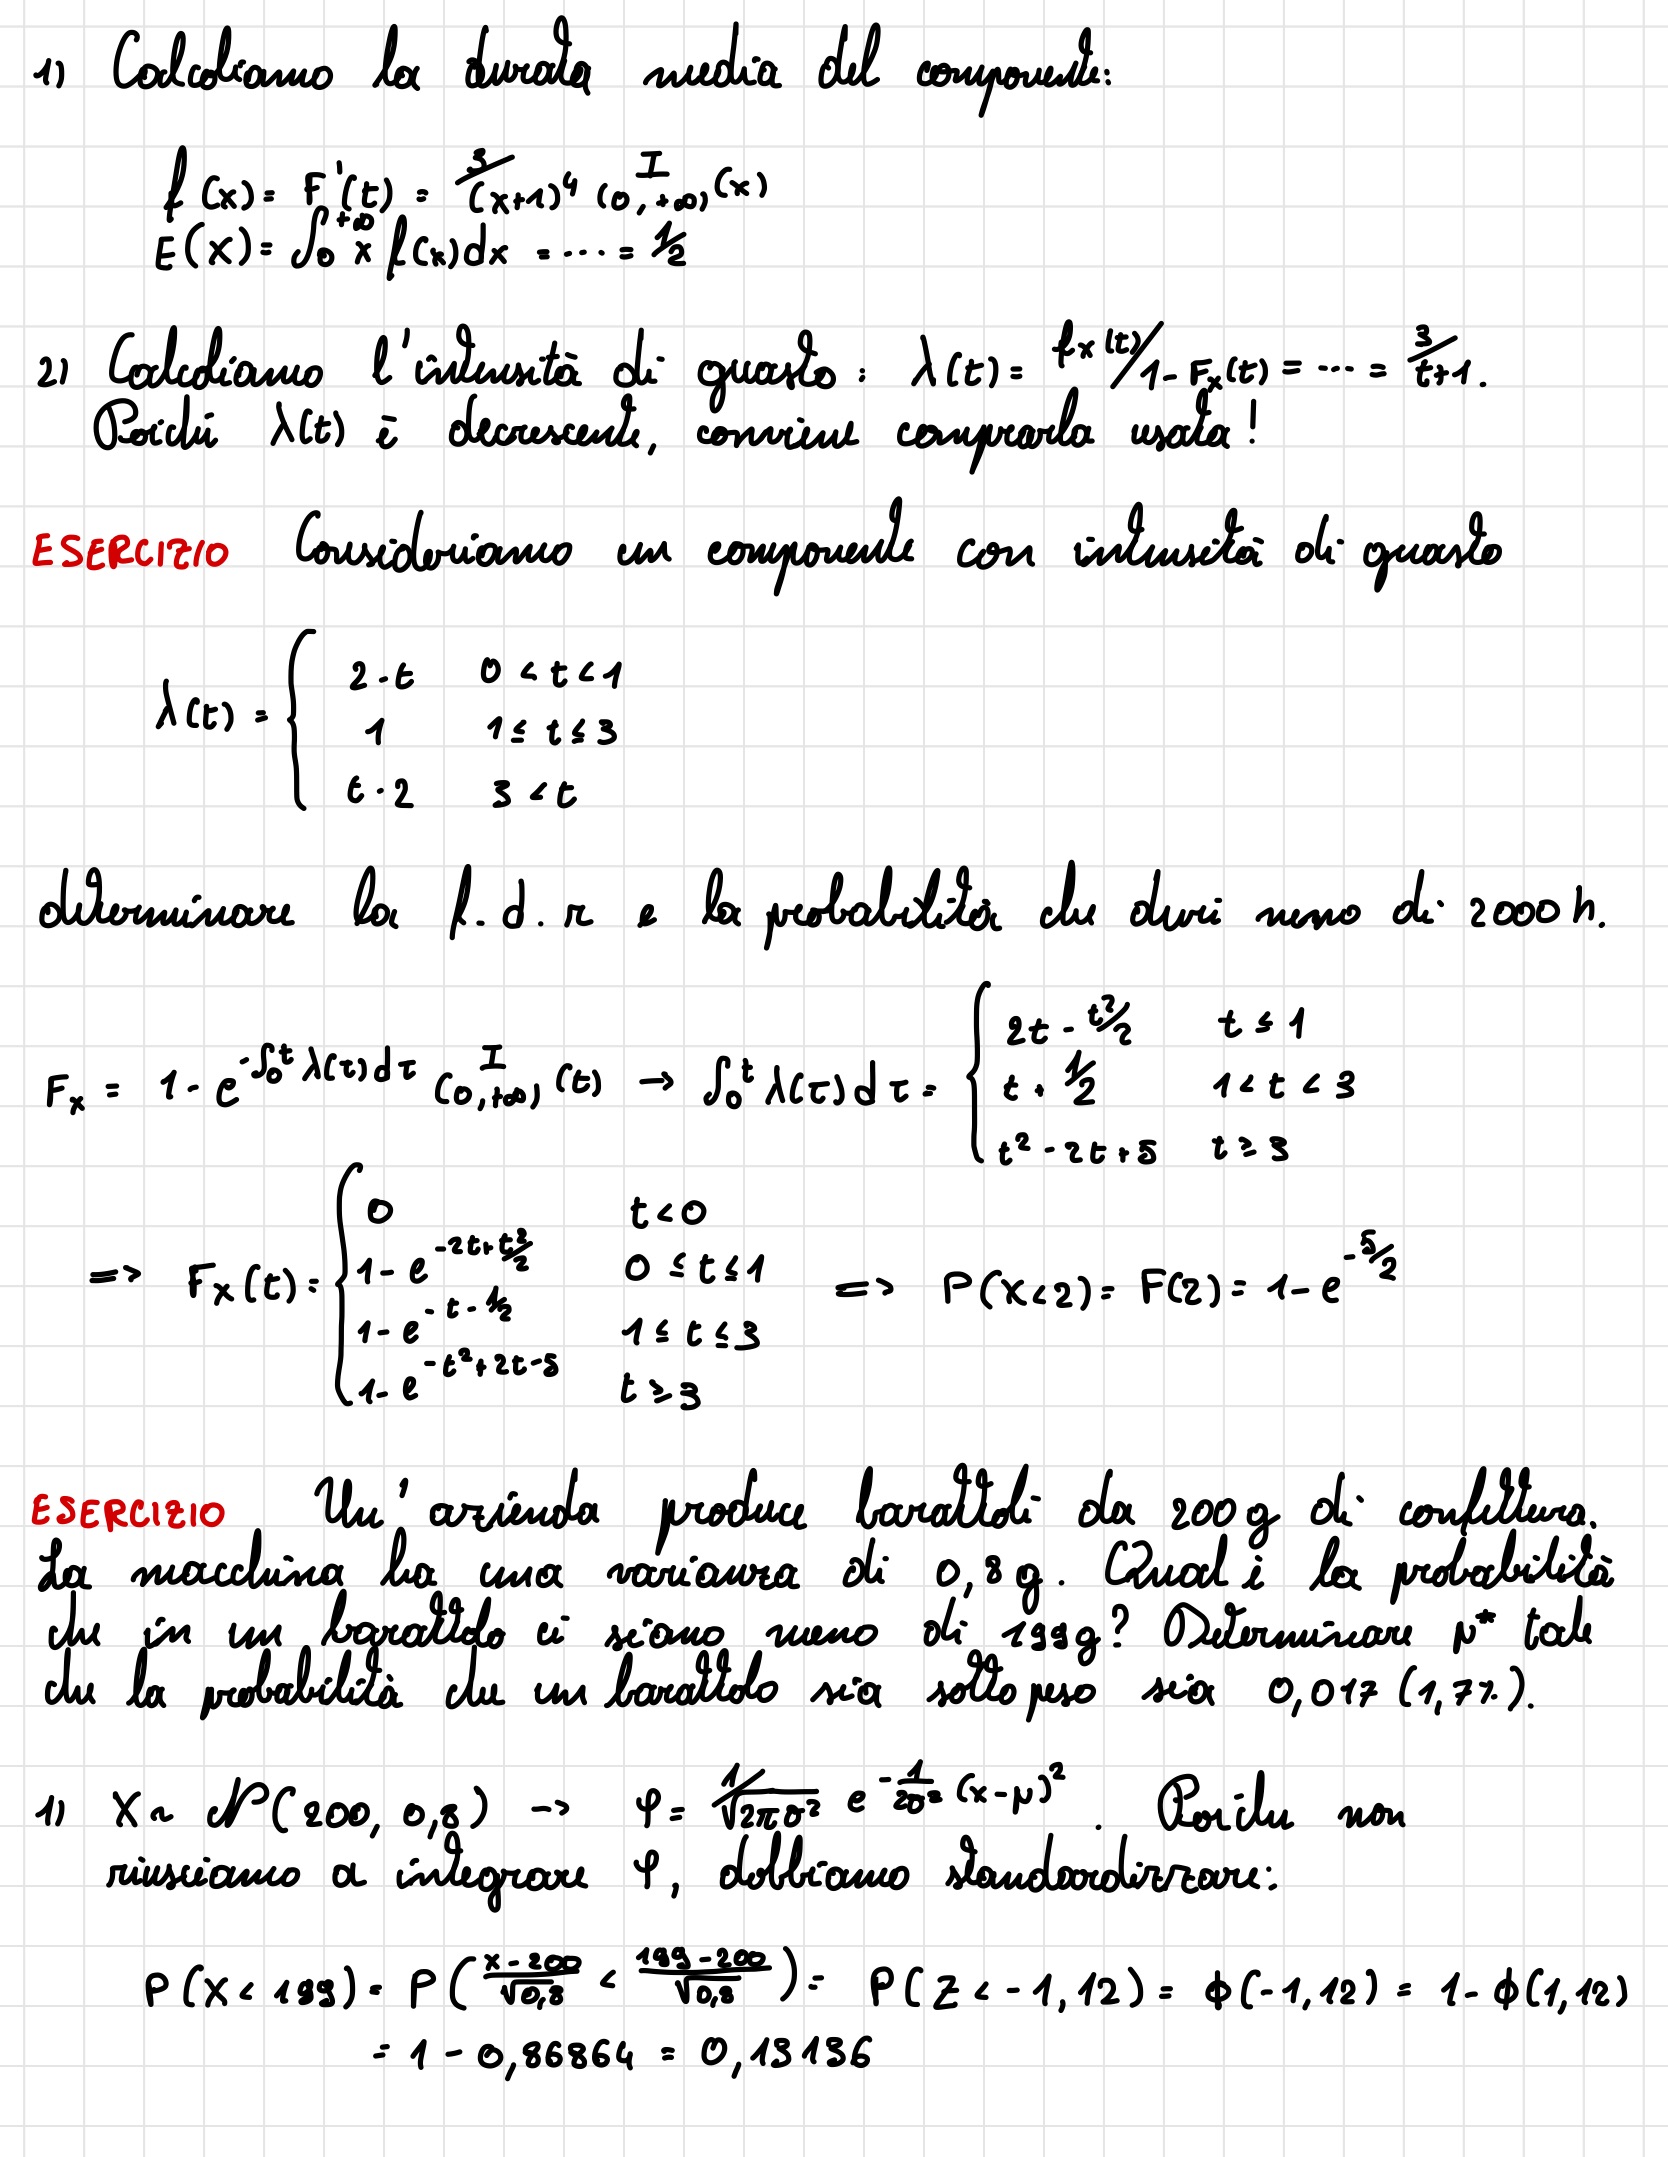 1) Calcoliamo la durata media del componente:
f(x) = F'(t) = 3/(x+1)^4 I(0,+∞)(x)
E(X) = ∫0^+∞ x f(x)dx = .... = 1/2
2) Calcoliamo l'intensità di guasto: λ(t) = fx(t)/1-Fx(t) = ... = 3/t+1.
Poiché λ(t) è decrescente, conviene comprarla usata!
ESERCIZIO Consideriamo un componente con intensità di guasto
λ(t) = { 2-t 0 < t < 1
1 1 ≤ t ≤ 3
t-2 3 < t
determinare la f.d.r e la probabilità che duri meno di 2000h.
Fx = 1-e^-∫0^t λ(τ)dτ I(0,+∞)(t) → ∫0^t λ(τ)dτ = { 2t - t²/2 t ≤ 1
t + 1/2 1 < t < 3
t² - 2t + 5 t ≥ 3
=> Fx(t) = { 0 t < 0
1-e^-2t+t²/2 0 ≤ t ≤ 1 => P(X<2) = F(2) = 1-e^-5/2
1-e^-t-1/2 1 ≤ t ≤ 3
1-e^-t²+2t-5 t ≥ 3
ESERCIZIO Un'azienda produce barattoli da 200g di confettura.
La macchina ha una varianza di 0,8g. Qual è la probabilità
che in un barattolo ci siano meno di 199g? Determinare μ* tale
che la probabilità che un barattolo sia sotto peso sia 0,017 (1,7%).
1) X ~ N(200, 0,8) -> φ = 1/√2πσ² e^-1/2σ² (x-μ)². Poiché non
riusciamo a integrare φ, dobbiamo standardizzare:
P(X < 199) = P(x-200/√0,8 < 199-200/√0,8) = P(Z < -1,12) = ϕ(-1,12) = 1-ϕ(1,12)
= 1 - 0,86864 = 0,13136